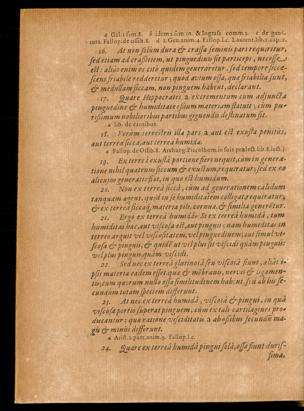 a Gal. 1. sem. 8. b idem i. sem. 10. & lograss comm. 2. c de geni-
tura. Fallop. de ossib. 8. d 2. Gen. anim. 4. Fallop. l. c. Laurent. lib. 2. cap. 2.
16. At non solum dura & crassa seminis pars requiritur,
sed etiam ad crassitiem, ut pinguedinis sit particeps, necesse
est: alias enim os cito quidem generaretur, sed tempore sicce-
scens friabile redderetur; quod arctum ossa, quæ friabilia sunt,
& medullam siccam, non pinguem habent, declarant.
17. Quare Hippocrates a excrementum cum adjuncta
pinguedine & humiditate ossium materiam statuit; cum pu-
rissimum nobilioribus partibus gignendis destinatum sit.
a lib. de carnibus.
18. Verum terrestris illa pars a aut est exusta penitus,
aut terrea sicca, aut terrea humida.
a Fallop. de Ossib. 8. Archang. Piccolhom. in suis prælect. lib. 1. lect. 5.
19. Ex terreâ exustâ portione fieri nequit, cum in genera-
tione nihil quatenus siccum & exustum requiratur, sed ex co
alicujus generatio fiat, in quo est humidum.
20. Non ex terreâ siccâ, cùm ad generationem calidum
tanquam agens, quod en se humiditatem colligat, requiratur,
& ex terreâ siccaq; materia pili, cornua, & similia generentur.
21. Ergo ex terreâ humidâ: At ex terreâ humidâ, tum
humiditas hæc aut viscosa est, aut pinguis: nam humiditas in
terreo arguit vel viscositatem, vel pinguedinem; aut simul vi-
scosa & pinguis, & quidē ut vel plus sit viscidi quàm pinguis;
vel plus pinguis, quàm viscidi.
22. Sed nec ex terreâ glutinosâ seu viscosâ fiunt, aliàs i-
psis materia eadem esset, quæ & mēbrano, nervis & ligamen-
tis; cum quorum nullo ossa similitudinem habent, seu ab his se-
cundùm totam speciem differant.
23. At nec ex terreâ humidâ, viscosâ & pingui, in quâ
viscosa portio superat pinguem, cùm ex tali cartilagines pro-
ducantur: quæ ratione visciditatis a ab ossibus secundùm ma-
gis & minus differunt.
a Arist. 2. part. anim. 9. Fallop. l. c.
24. Quare ex terreâ humidâ pingui solâ, ossa fiunt duris-
sima.